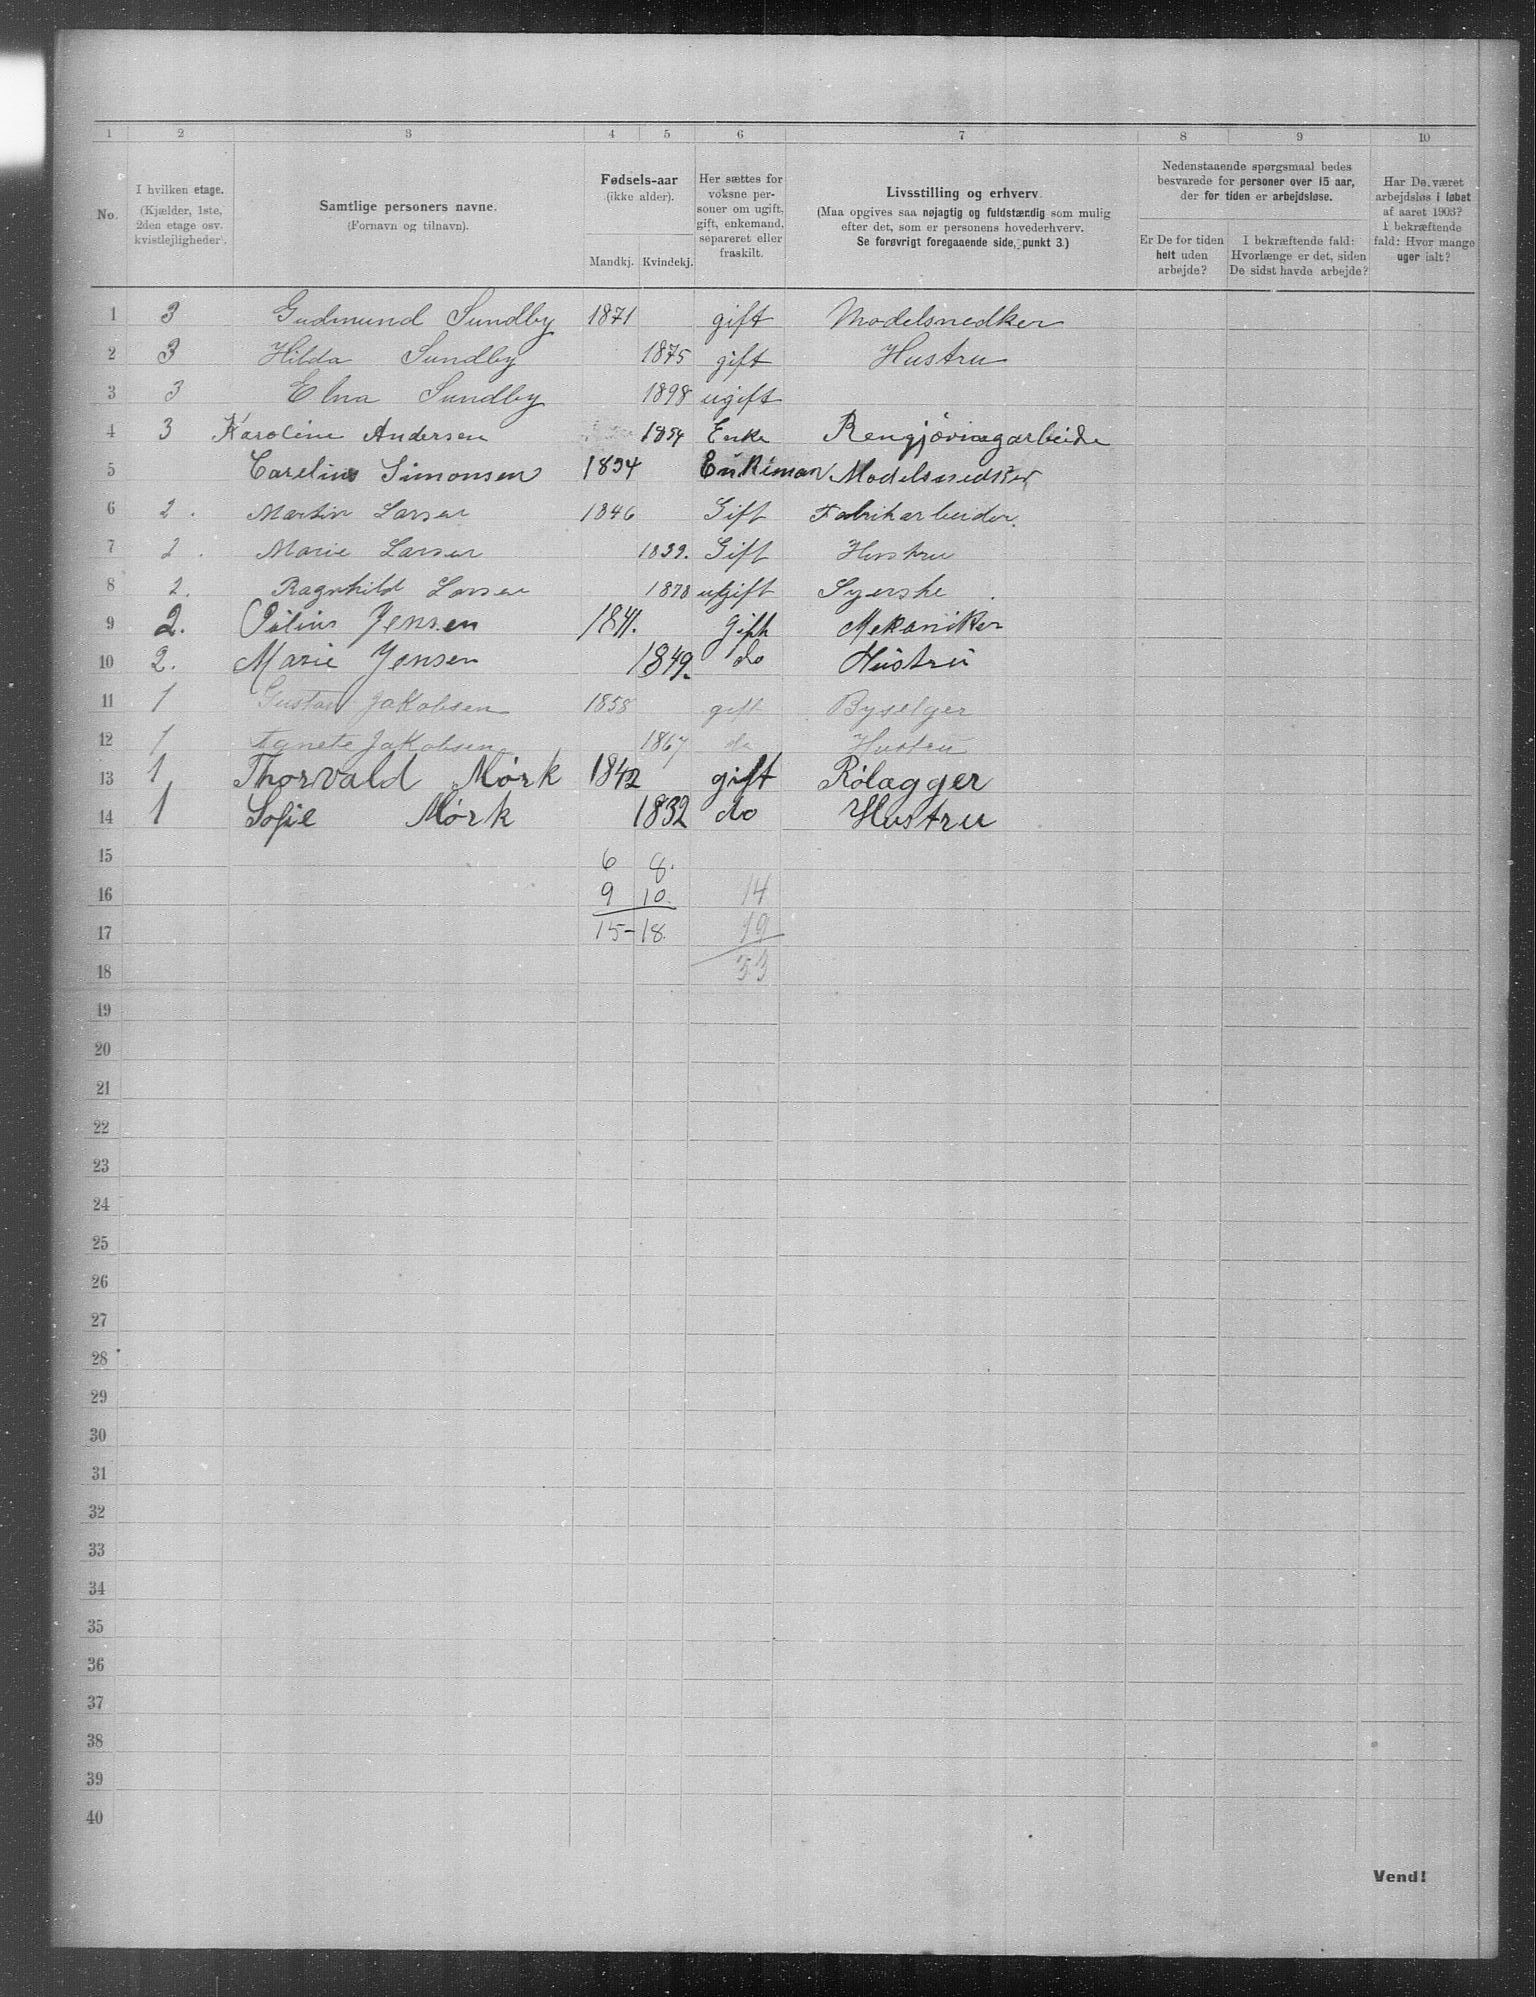 1 2 3 4 5 6 7 8 9 10
No.
I hvilken etage.
(Kjælder, 1ste,
2den etage osv.
kvistlejligheder).
Samtlige personers navne.
(Fornavn og tilnavn).
Fødsels-aar
(ikke alder).
Mandkj. Kvindekj.
Her sættes for
voksne per-
soner om ugift,
gift, enkemand,
separeret eller
fraskilt.
Livsstilling og erhverv.
(Maa opgives saa nøjagtig og fuldstændig som mulig
efter det, som er personens hovederhverv.
Se forøvrigt foregaaende side, punkt 3.)
Nedenstaaende spørgsmaal bedes
besvarede for personer over 15 aar,
der for tiden er arbejdsløse.
Er De for tiden
helt uden
arbejde?
I bekræftende fald:
Hvorlænge er det, siden
De sidst havde arbejde?
Har De været
arbejdsløs i løbet
af aaret 1903?
I bekræftende
fald: Hvor mange
uger ialt?
1 3 Gudmund Sundby 1871 gift Modelsnedker
2 3 Hilda Sundby 1875 gift Hustru
3 3 Elna Sundby 1898 ugift
4 3 Karoline Andersen 1854 Enke Rengjøringarbeide
5 Carelius Simonsen 1834 Enkeman Modelsnedker
6 2. Martin Larsen 1846 Gift Fabrikarbeider.
7 2. Marie Larsen 1839. Gift Hustru
8 2. Ragnhild Larsen 1870 ugift Syerske
9 2. Jensen 1841. Gift Mekaniker
10 2. Marie Jensen 1849. do Hustru
11 1 Gustav Jakobsen 1858 gift Byselger
12 1 Agnete Jakobsen 1867 do Hustru
13 1 Thorvald Mørk 1842 gift Rølægger
14 1 Sofie Mørk 1832 do Hustru
15 6 8.
16 9 10. 14
17 15-18. 19
18 33
19
20
21
22
23
24
25
26
27
28
29
30
31
32
33
34
35
36
37
38
39
40
Vend!